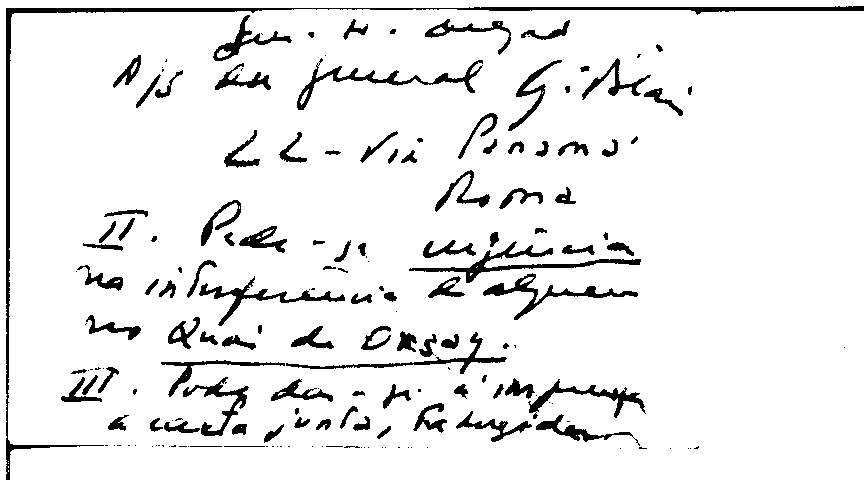 Gen. H. Delgado
A/S do general
22 - Via Panamá
Roma
II. Pede-se urgência
na interferência de alguem
no Quai de Orsay.
III. Pode dar-se à imprensa
a carta junta, traduzida